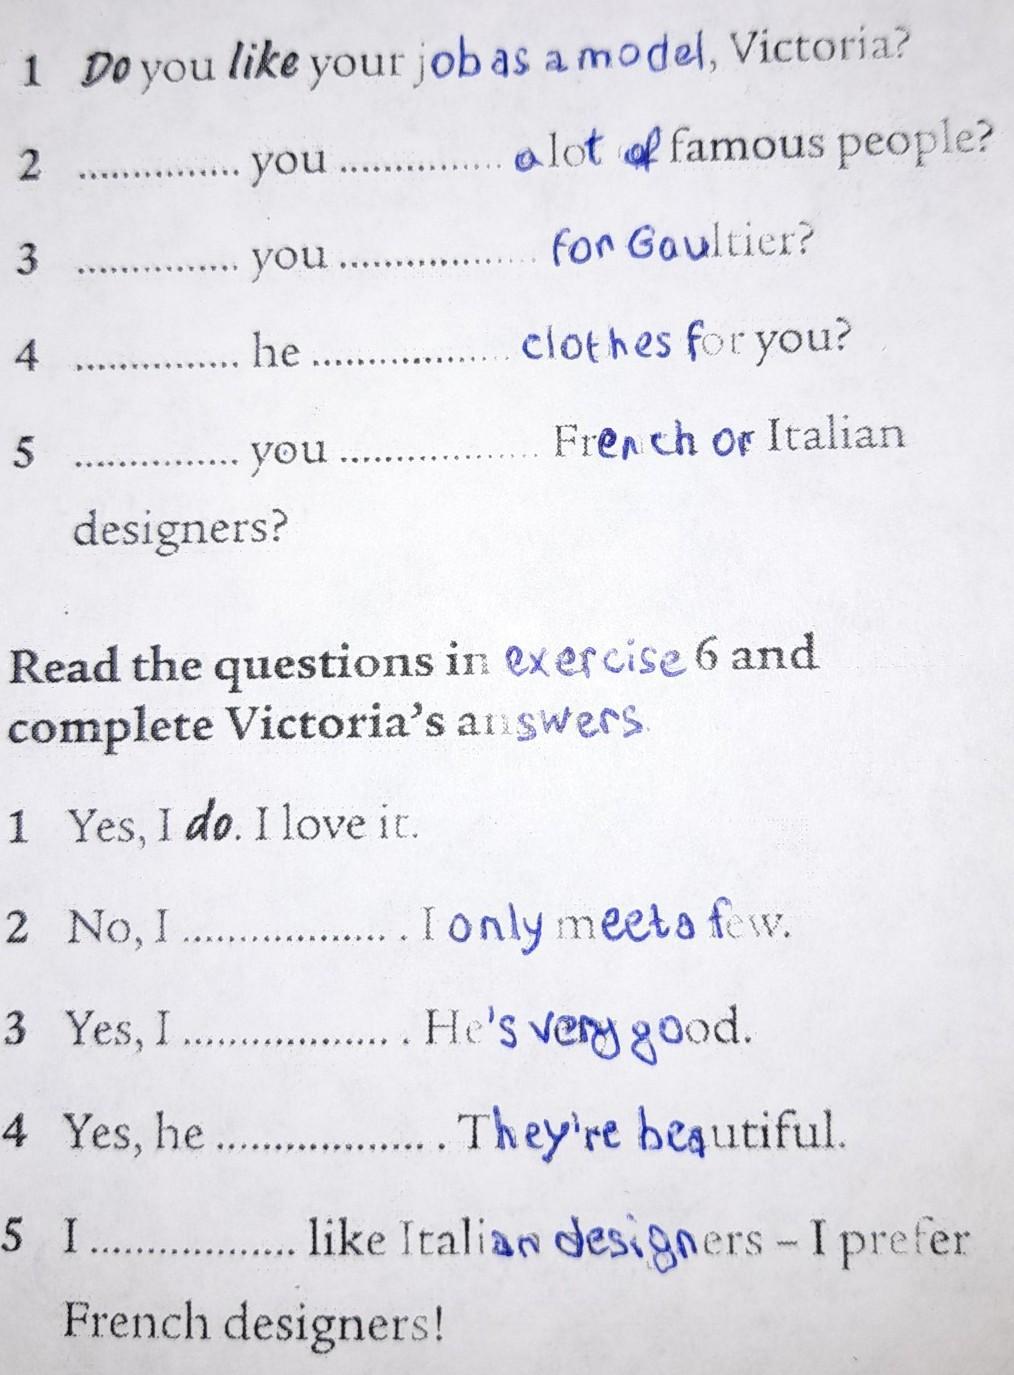 1 Do you like your job as a model, Victoria?
2 ............... you ............... a lot of famous people?
3 ............... you ................... for Gaultier?
4 ............... he ................... clothes for you?
5 ............... you ................... French or Italian
designers?
Read the questions in exercise 6 and
complete Victoria's answers.
1 Yes, I do. I love it.
2 No, I ................... . I only meet a few.
3 Yes, I ................... . He's very good.
4 Yes, he ................... . They're beautiful.
5 I ................... like Italian designers – I prefer
French designers!